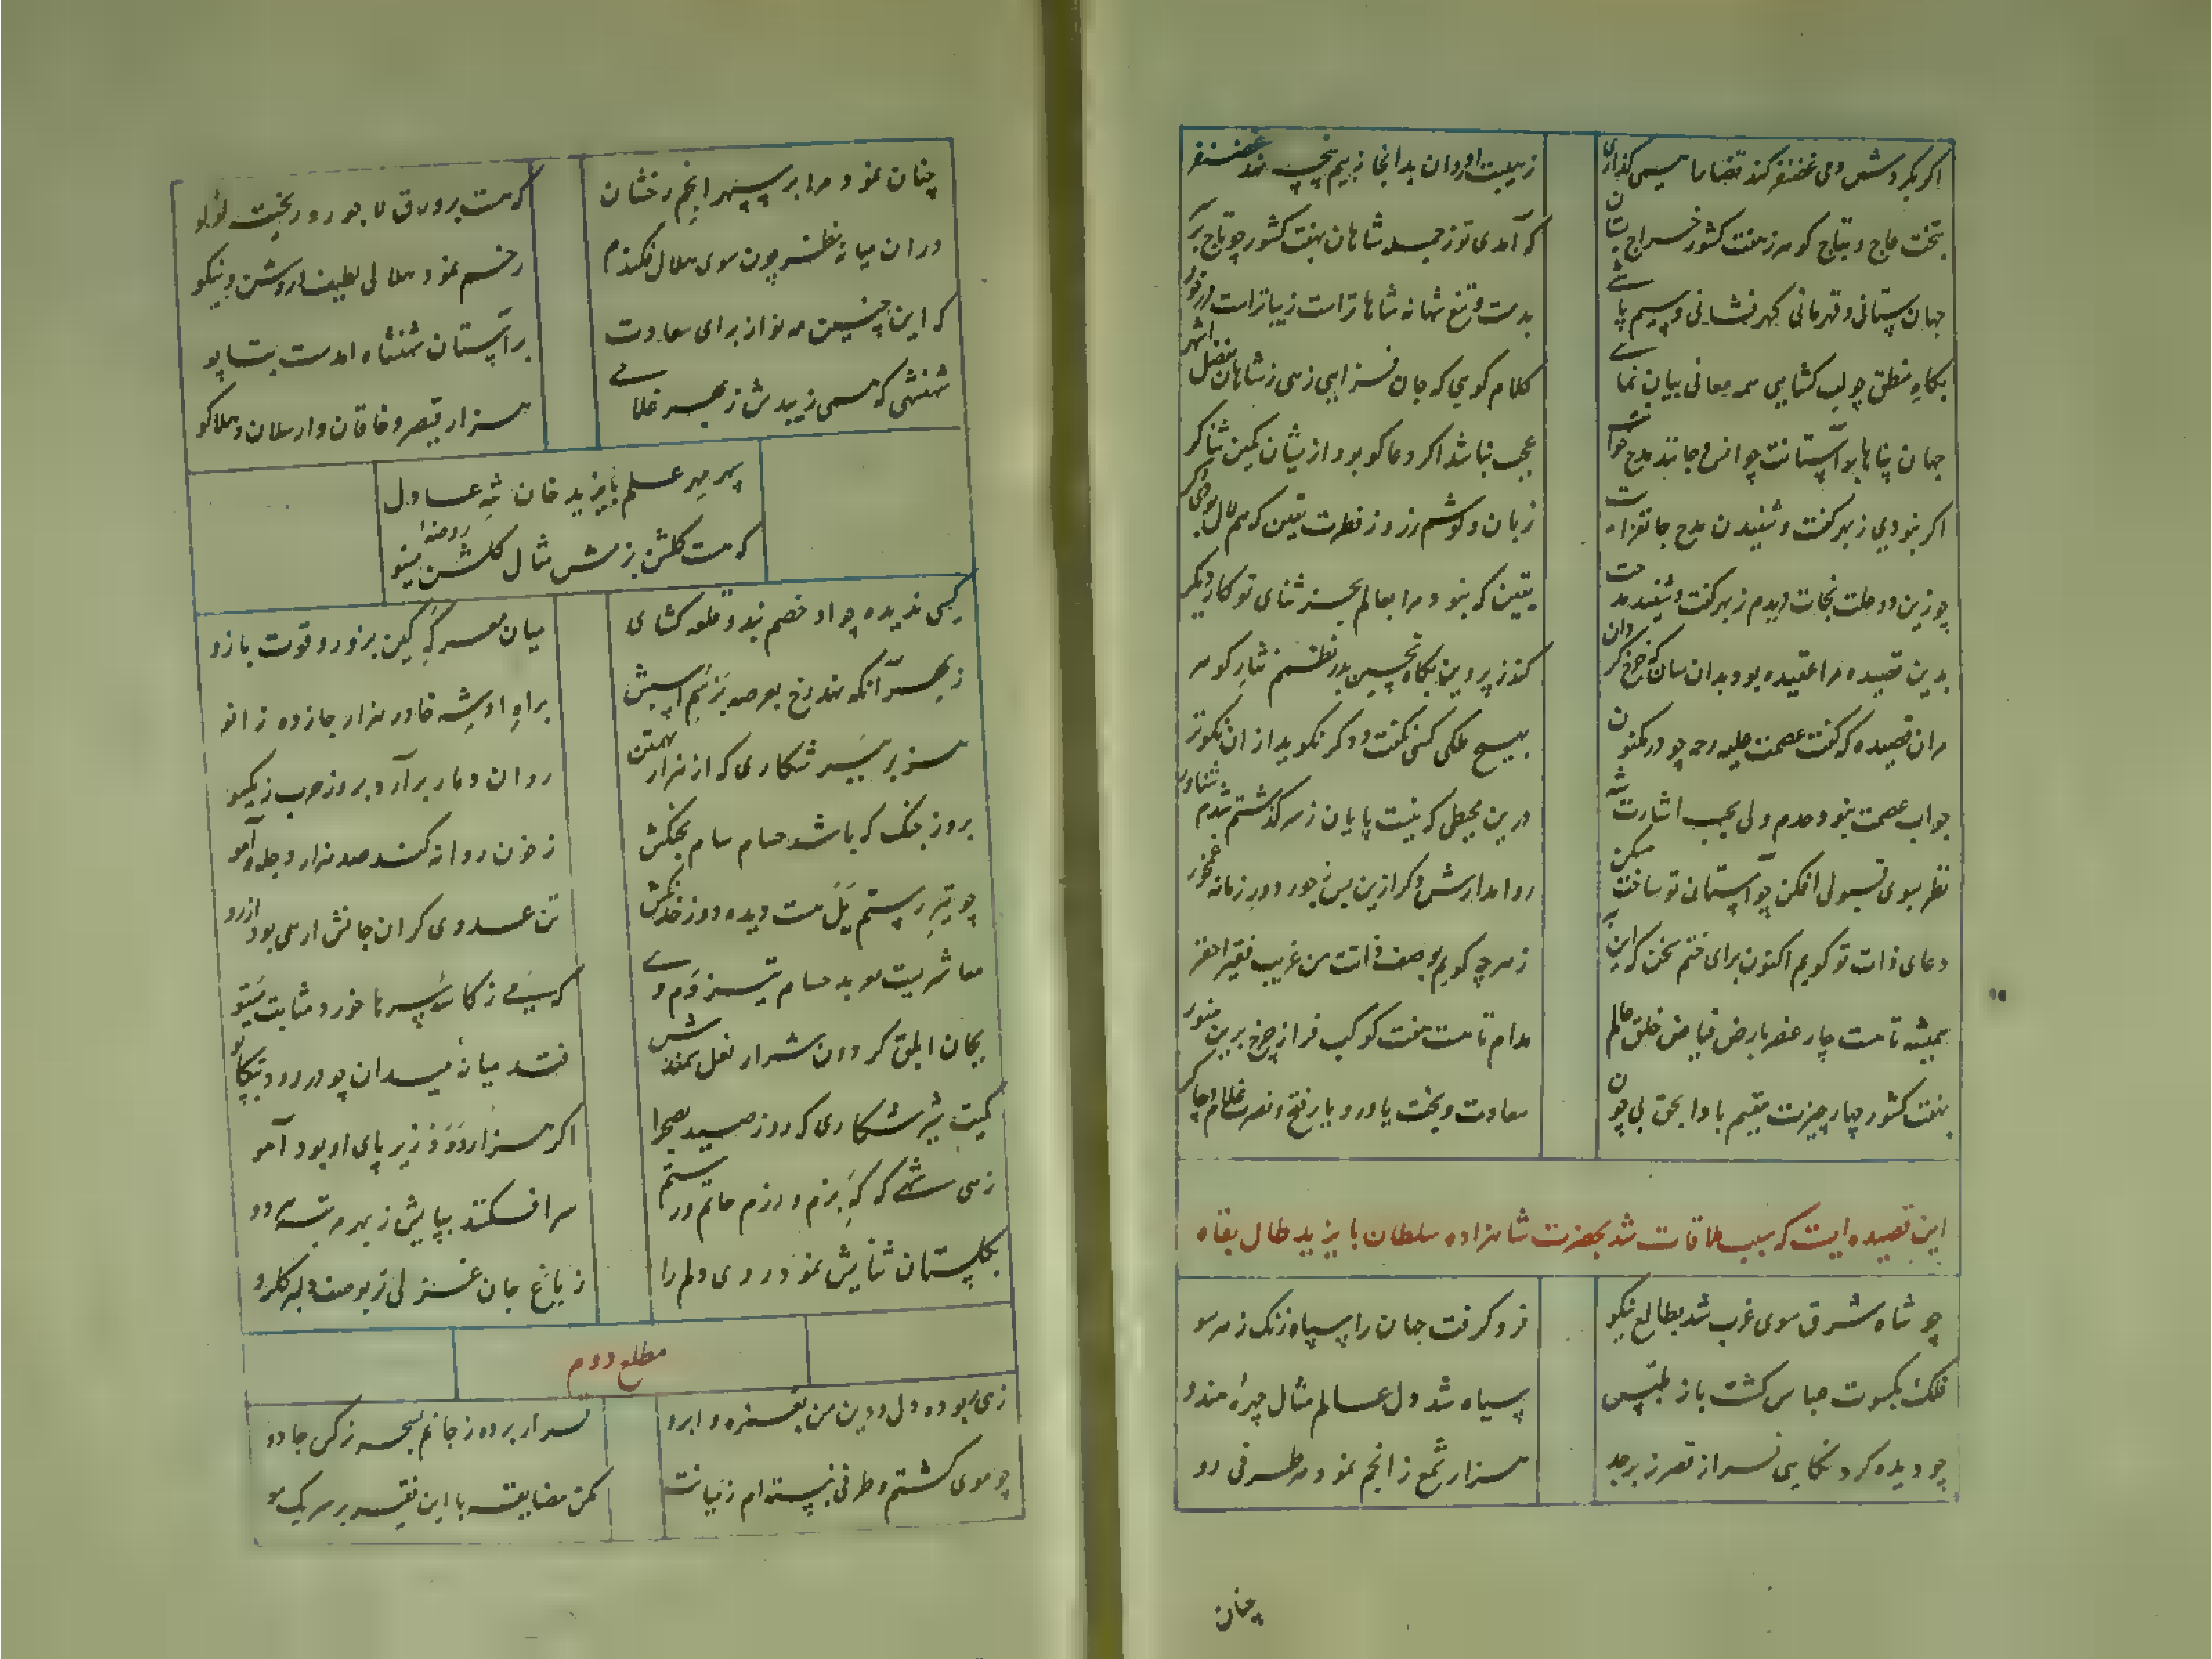 اکر بکر دش دمی غضنفر کند قضا ما سیسی کذاری
زهیبت او روان بدانجا ز بیم پنجه نهد غضنفر
بتخت عاج و بتاج کوهر ز هفت کشور خراج بستان
که آمدی تو ز جمله شاهان بهفت کشور چو تاج بر سر
جهان ستانی و قهرمانی کهر فشانی و سیم پاشی
بدست تو تیغ شهانه شاها تراست زیبا تراست درخور
بکاه منطق چو لب کشایی همه معانی بیان نمایی
کلام کویی که جان فزایی زهی ز شاهان بفضل اشهر
جهان پناها بر آستانت چو انس و جانند مدح خوانت
عجب نباشد اکر دعا کو بود ازیشان کمین ثنا کر
اکر نبودی ز بهر کفت و شنیدن مدح جانفزات
زبان و کوشم ز روز فطرت یقین که هم لال بودی کر
چو زین دو علت نجات دیدم ز بهر کفت و شنید مدحت
یقین که نبود مرا بعالم بجز ثنای تو کار دیکر
بدین قصیده مرا عقیده بود بدان سان که چرخ کردان
کند ز پروین بکاه تحسین بدر نظمم نثار کوهر
مران قصیده که کفت عصمت علیه رحمه چو در مکنون
بهیچ ملکی کسی نکفت و دکر نکوید از ان نکوتر
جواب عصمت نبود حدم ولی بحسب اشارت شه
درین محیطی که نیست پایان ز سر کذشتم شدم شناور
نظر بسوی قبولی افکن چو آستان تو ساخت مسکن
روا مدارش دکر ازین پس ز جور دور زمانه غمخور
دعای ذات تو کویم اکنون برای ختم سخن که این به
ز هر چه کویم بوصف ذاتت من غریب فقیر احقر
همیشه تا هست چار عنصر بارض فیاض خلق عالم
مدام تا هست هفت کوکب فراز چرخ برین منور
بهفت کشور چهار چیزت مقیم بادا بحق بی چون
سعادت و بخت یاور و یار فتح و نصرت غلام و چاکر
این قصیده ایست که سبب ملاقات شد بحضرت شاهزاده سلطان بایزید طال بقاه
چو شاه شرق سوی غرب شد بطالع نیکو
فرو کرفت جهان را سپاه زنک ز هر سو
فلک بکسوت عباس کشت باز ملبس
سیاه شد دل عالم مثال چهره هندو
چو دیده کرد نکاهی فراز قصر زبرجد
هزار شمع ز انجم نمود هر طرفی رو
چنان
چنان نمود مرا بر سپهر انجم رخشان
که هست بر ورق لاجورد ریخته لؤلؤ
دران میانه نظر چون سوی هلال فکندم
رخم نمود هلالی لطیف و روشن و نیکو
که این چنین مه نو از برای سعادت
بر آستان شهنشاه امدست بتکاپو
شهنشهی که همی زیبدش ز بهر غلامی
هزار قیصر و خاقان و ارسلان و هلاکو
سپهر علم بایزید خان شه عادل
که هست کلشن بزمش مثال کلشن مینو
روضه
کسی ندیده چو او خصم بند و قلعه کشای
میان معرکه کین بزور و قوت بازو
ز بهر آنکه نهد رخ بعرصه بر سم اسپش
براه او شه خاور هزار جا زده زانو
هزبر شیر شکاری که از هزار تهمتن
روان دمار برآرد بروز حرب ز یکسو
بروز جنک که باشد حسام سام بچنکش
ز خون روانه کند صد هزار دجله و آمو
چو تیر رستم یل هست دیده دوز خدنکش
تن عدوی کران جانش ار همی بود از رو
فتد میانه میدان چو در رود بتکاپو
کمیت شیر شکاری که روز صید بصحرا
اکر هزار دود زیر پای او بود آهو
زهی شهی که که بزم و رزم حاتم و رستم
سر افکنند بپایش ز بهر مرتبه هر دو
بکلستان ثنایش نمود روی دلم را
ز باغ جان غزلی ز بوصف دلبر کلرو
مطلع دوم
زهی ربوده دل و دین من بغمزه و ابرو
قرار برده ز جانم بسحر نرکس جادو
چو موی کشتم و طرفی نبسته ام ز میانت
مکن مضایقه با این فقیر بر سر یک مو